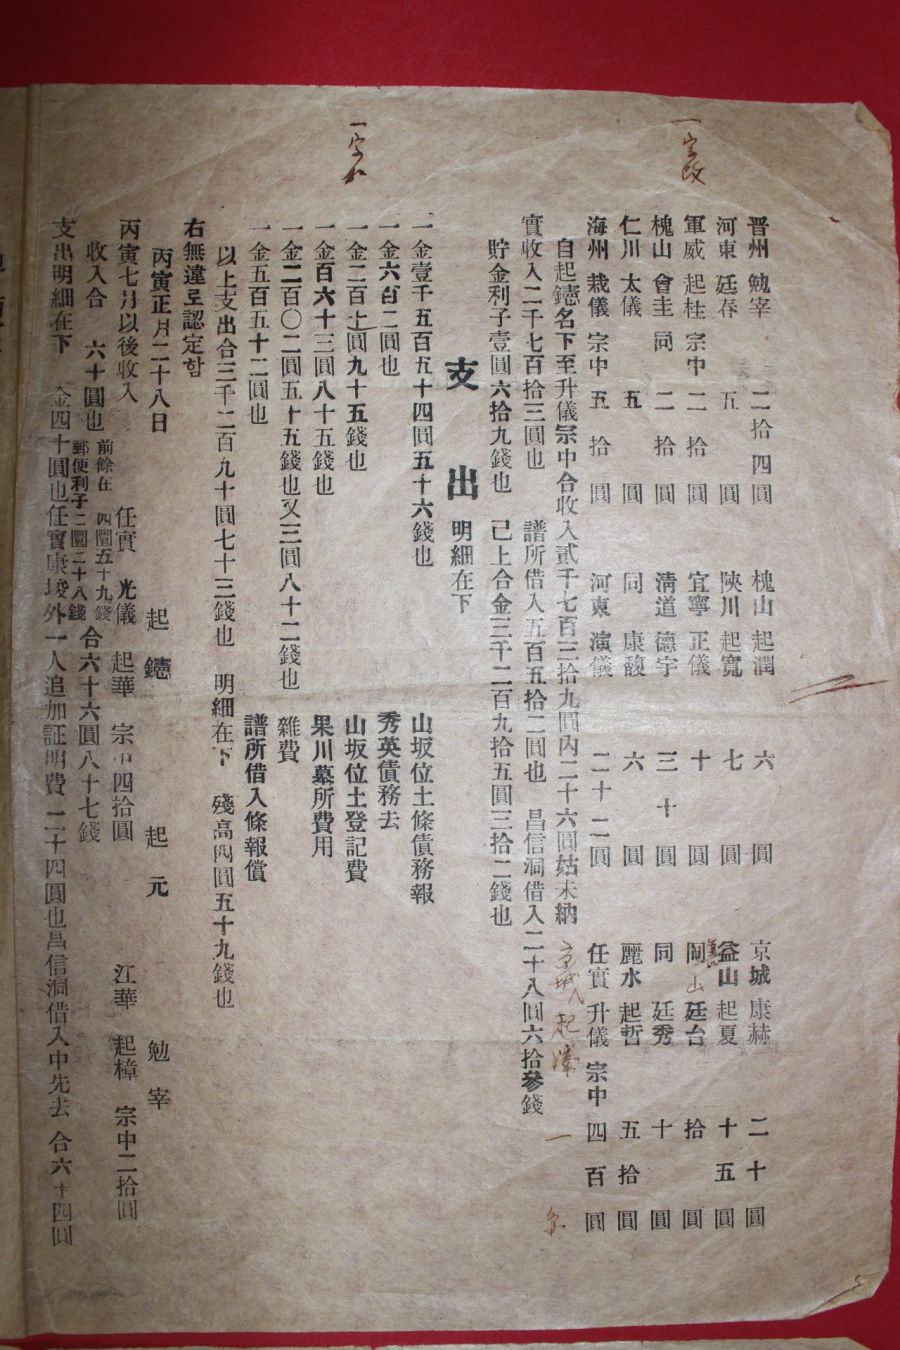 晋州 勉宰 二拾四圓 槐山 起潤 六圓 京城 康赫 二十圓
河東 廷春 五圓 陜川 起寬 七圓 益山 起夏 十五圓
軍威 起桂 宗中 二拾圓 宜寧 正儀 十圓 山 廷台 拾圓
槐山 會圭 同 二拾圓 淸道 德宇 三十圓 同 廷秀 十圓
仁川 太儀 五圓 同 康馥 六圓 麗水 起哲 五拾圓
海州 栽儀 宗中 五拾圓 河東 演儀 二十二圓 任實 升儀 宗中 四百圓
自起鐻名下至升儀宗中合收入貳千七百三拾九圓內二十六圓姑未納 京城 起
實收入二千七百拾三圓也 譜所借入五百五拾二圓也 昌信洞借入二十八圓六拾參錢
貯金利子壹圓六拾九錢也 已上合金三千二百九拾五圓三拾二錢也
支出 明細在下
一金壹千五百五十四圓五十六錢也 山坂位土條債務報
一金六百二圓也 秀英債務去
一金二百七圓九十五錢也 山坂位土登記費
一金百六十三圓八十五錢也 果川墓所費用
一金二百〇二圓五十五錢也又三圓八十二錢也 雜費
一金五百五十二圓也 譜所借入條報償
以上支出合三千二百九十圓七十三錢也 明細在下 殘高四圓五十九錢也
右無違로認定함
丙寅正月二十八日 起鐻 起元 勉宰
丙寅七月以後收入 任實 光儀 起華 宗中四拾圓 江華 起樟 宗中二拾圓
收入合 六十圓也 前餘在 四圓五十九錢 郵便利子二圓二十八錢 合六十六圓八十七錢
支出明細在下 金四十圓也任實康埈外一人追加証明費 二十四圓也昌信洞借入中先去 合六十四圓